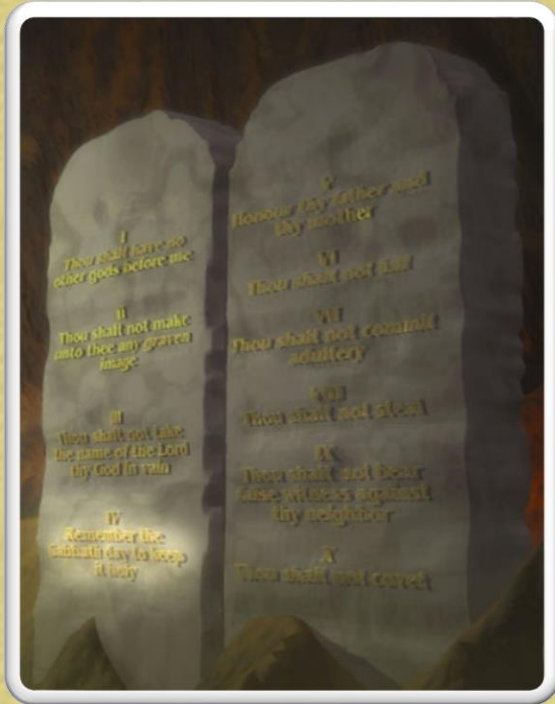 I
Thou shalt have no
other gods before me
II
Thou shalt not make
unto thee any graven
image
III
Thou shalt not take
the name of the Lord
thy God in vain
IV
Remember the
Sabbath day to keep
it holy
V
Honour thy father and
thy mother
VI
Thou shalt not kill
VII
Thou shalt not commit
adultery
VIII
Thou shalt not steal
IX
Thou shalt not bear
false witness against
thy neighbor
X
Thou shalt not covet